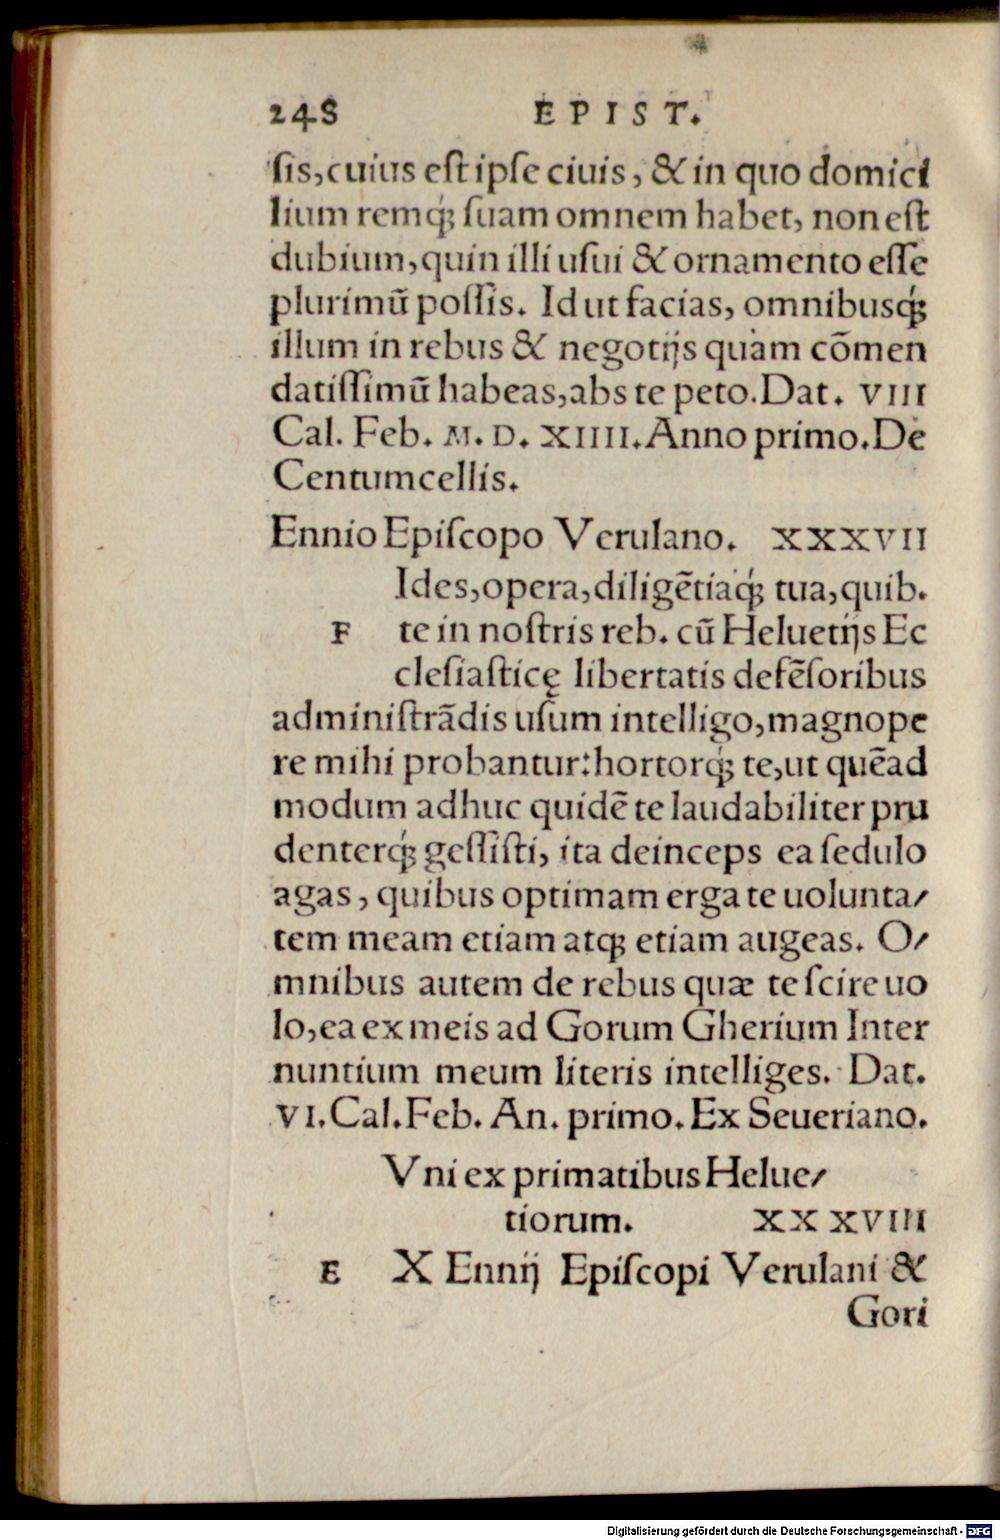 248 EPIST.
ſis,cuius eſt ipſe ciuis, & in quo domici
lium remq́; ſuam omnem habet, non eſt
dubium,quin illi uſui & ornamento eſſe
plurimũ poſſis. Id ut facias, omnibusq́;
illum in rebus & negotijs quàm cõmen
datiſſimũ habeas,abs te peto.Dat. VIII
Cal. Feb. M. D. XIIII.Anno primo.De
Centumcellis.
Ennio Epiſcopo Verulano. XXXVII
Ides,opera,diligẽtiaq́; tua,quib.
F te in noſtris reb. cũ Heluetijs Ec
cleſiaſticę libertatis defẽſoribus
adminiſtrãdis uſum intelligo,magnope
re mihi probantur:hortorq́; te,ut quẽad
modum adhuc quidẽ te laudabiliter pru
denterq́; geſſiſti, ita deinceps ea ſedulo
agas, quibus optimam erga te uolunta/
tem meam etiam atq; etiam augeas. O/
mnibus autem de rebus quæ te ſcire uo
lo,ea ex meis ad Gorum Gherium Inter
nuntium meum literis intelliges. Dat.
VI.Cal.Feb. An. primo.Ex Seueriano.
Vni ex primatibus Helue/
tiorum. XXXVIII
E X Ennij Epiſcopi Verulani &
Gori
Digitalisierung gefördert durch die Deutsche Forschungsgemeinschaft - DFG